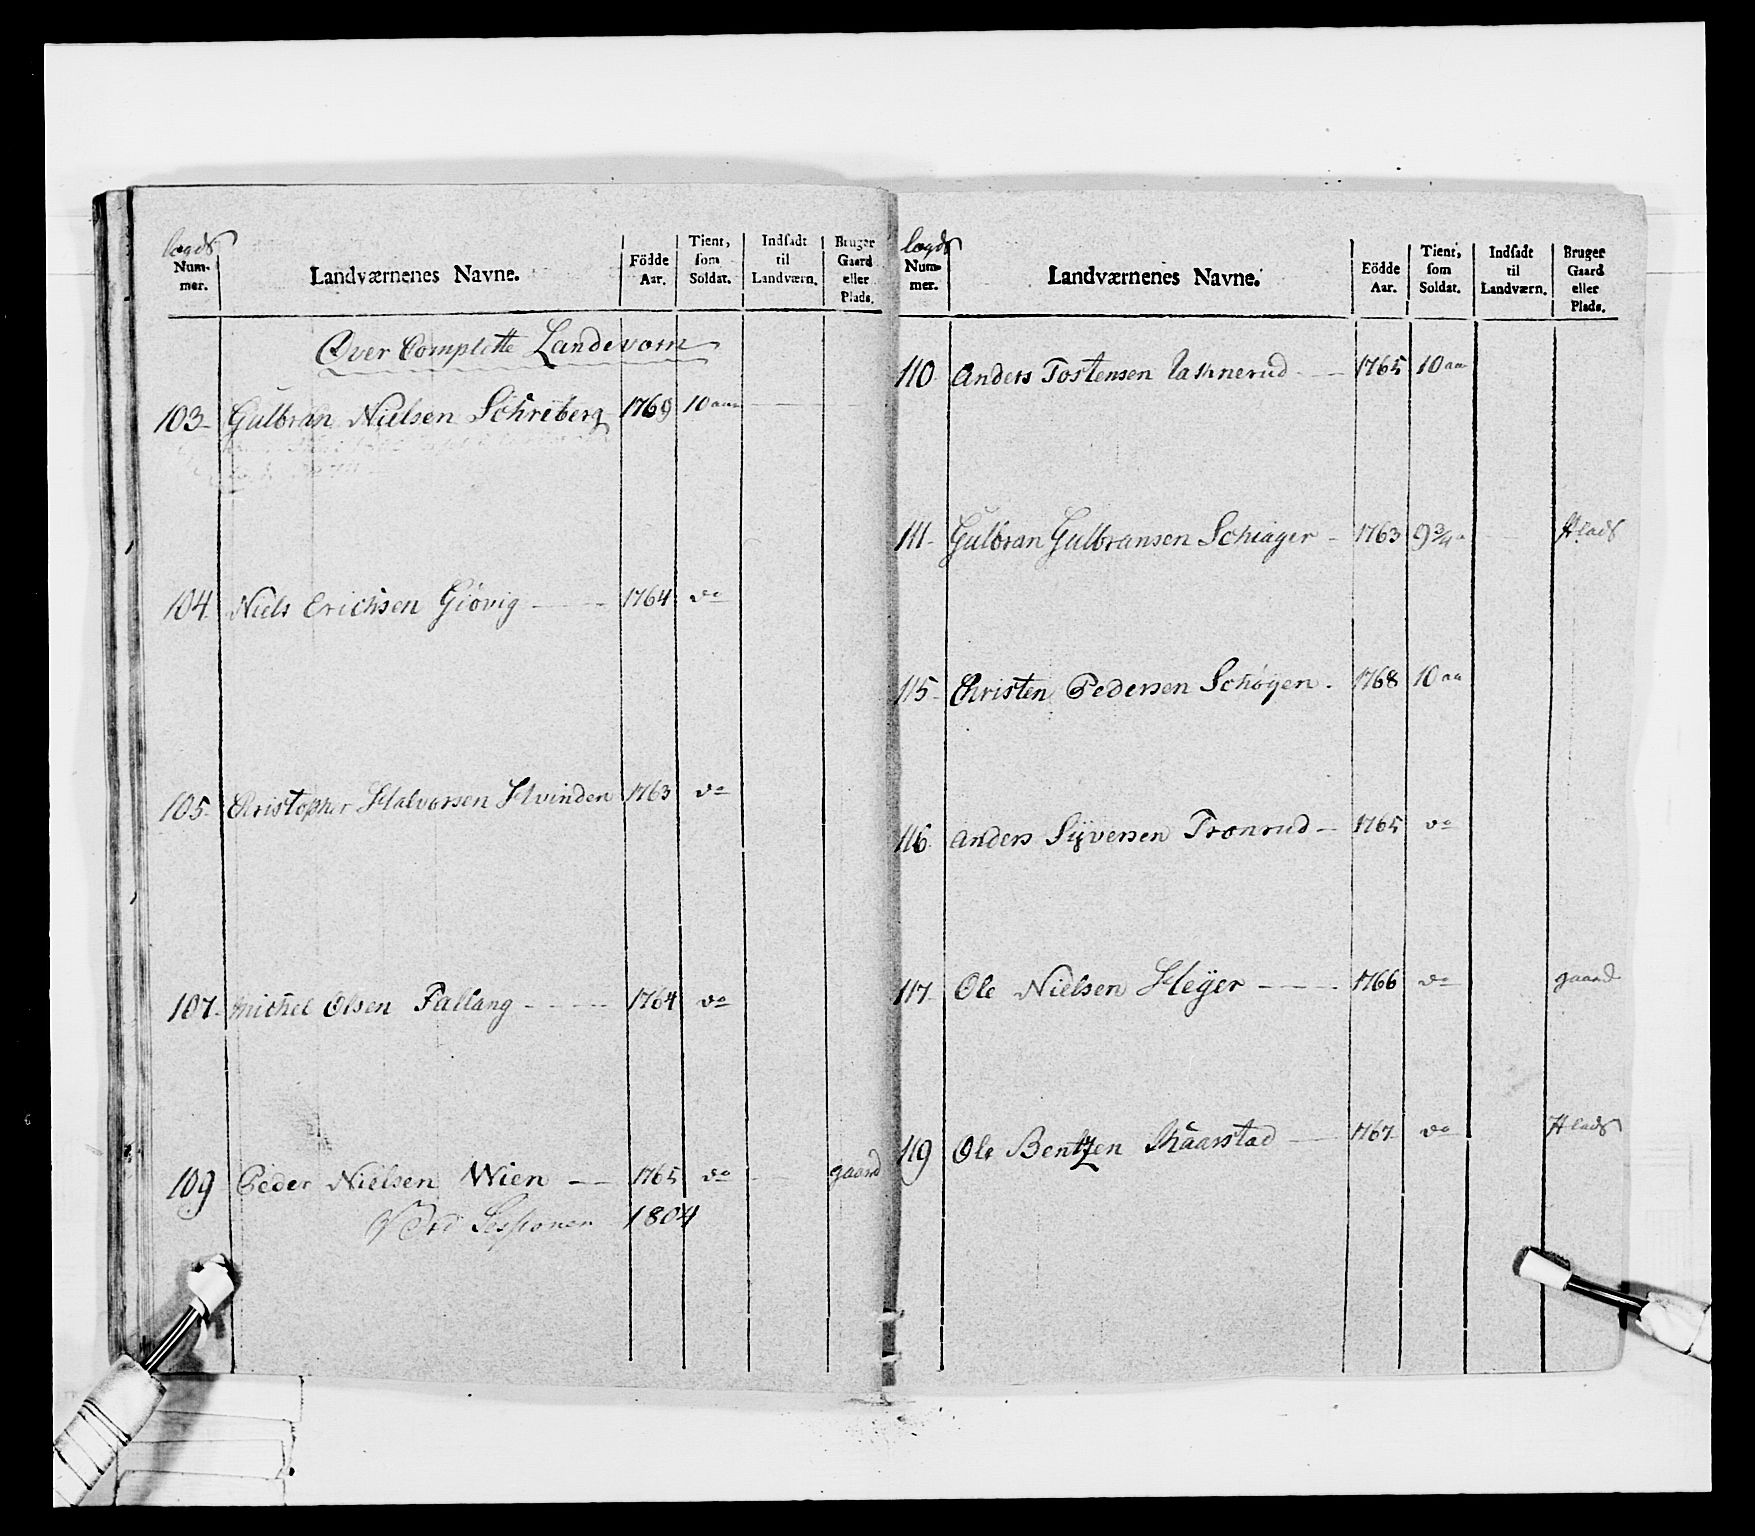 Lægds Num-mer. Landværnenes Navne. Födde Aar. Tient, som Soldat. Indsadt til Landværn. Bruger Gaard eller Plads.
Over Complette Landevorn
103 Gulbran Nielsen Schreberg 1769 10 aar
104. Niels Erichsen Giövig 1764 do
105. Christopher Halvorsen Hvinden 1763 do
107. Michel Olsen Fallang 1764 do
109 Peder Nielsen Wien 1765 do gaard
Ved Sessionen 1804
Lægds Num-mer. Landværnenes Navne. Födde Aar. Tient, som Soldat. Indsadt til Landværn. Bruger Gaard eller Plads.
110 Anders Tostensen 1765 10 aar
111. Gulbran Gulbransen Schiager 1763 9 3/4 a Plads
115. Christen Pedersen Schøyen 1768 10 aa
116. Anders Syversen Tronrud 1765 do
117. Ole Nielsen Heÿer 1766 do gaard
119 Ole Bentzen Skaarstad 1767 do Plads